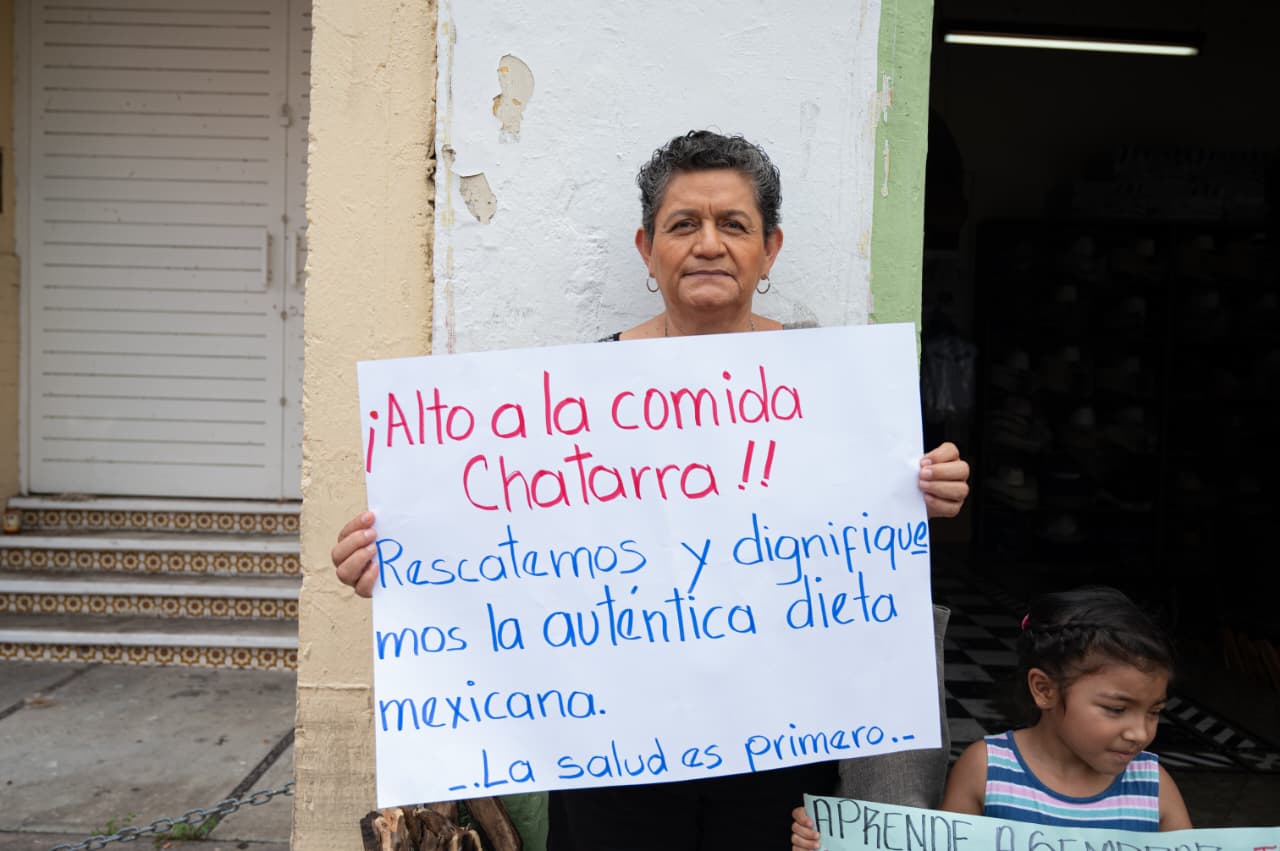 ¡Alto a la comida
Chatarra!!
Rescatemos y dignifique
mos la auténtica dieta
mexicana.
_..La salud es primero.._
APRENDE A SEMBRAR